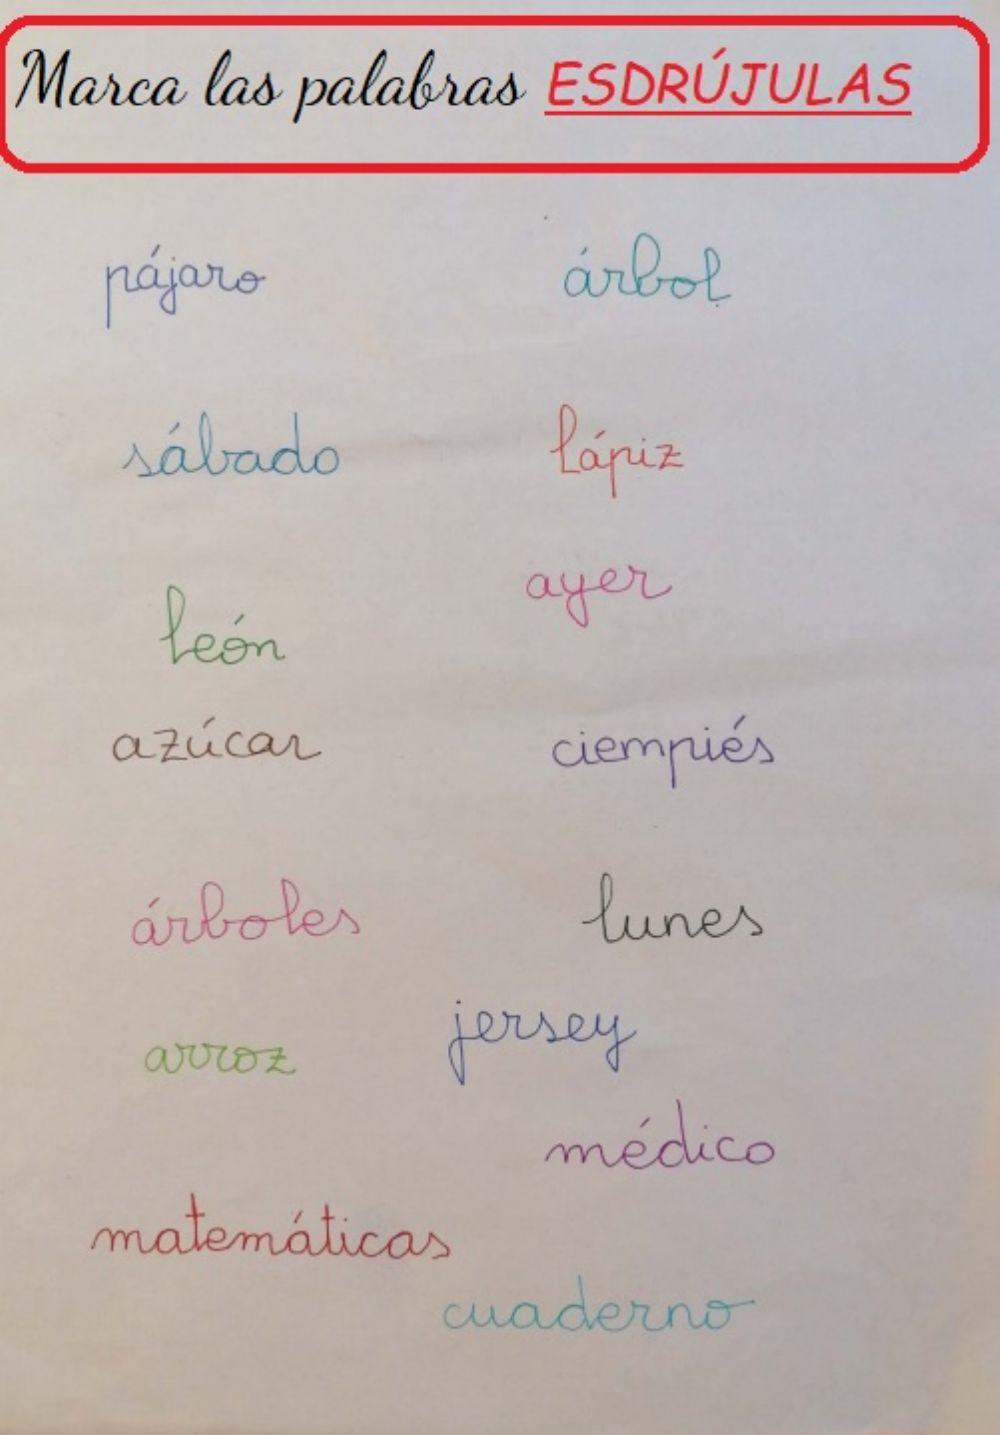 Marca las palabras ESDRÚJULAS
pájaro árbol
sábado lápiz
ayer
león
azúcar ciempiés
árboles lunes
jersey
arroz
médico
matemáticas
cuaderno